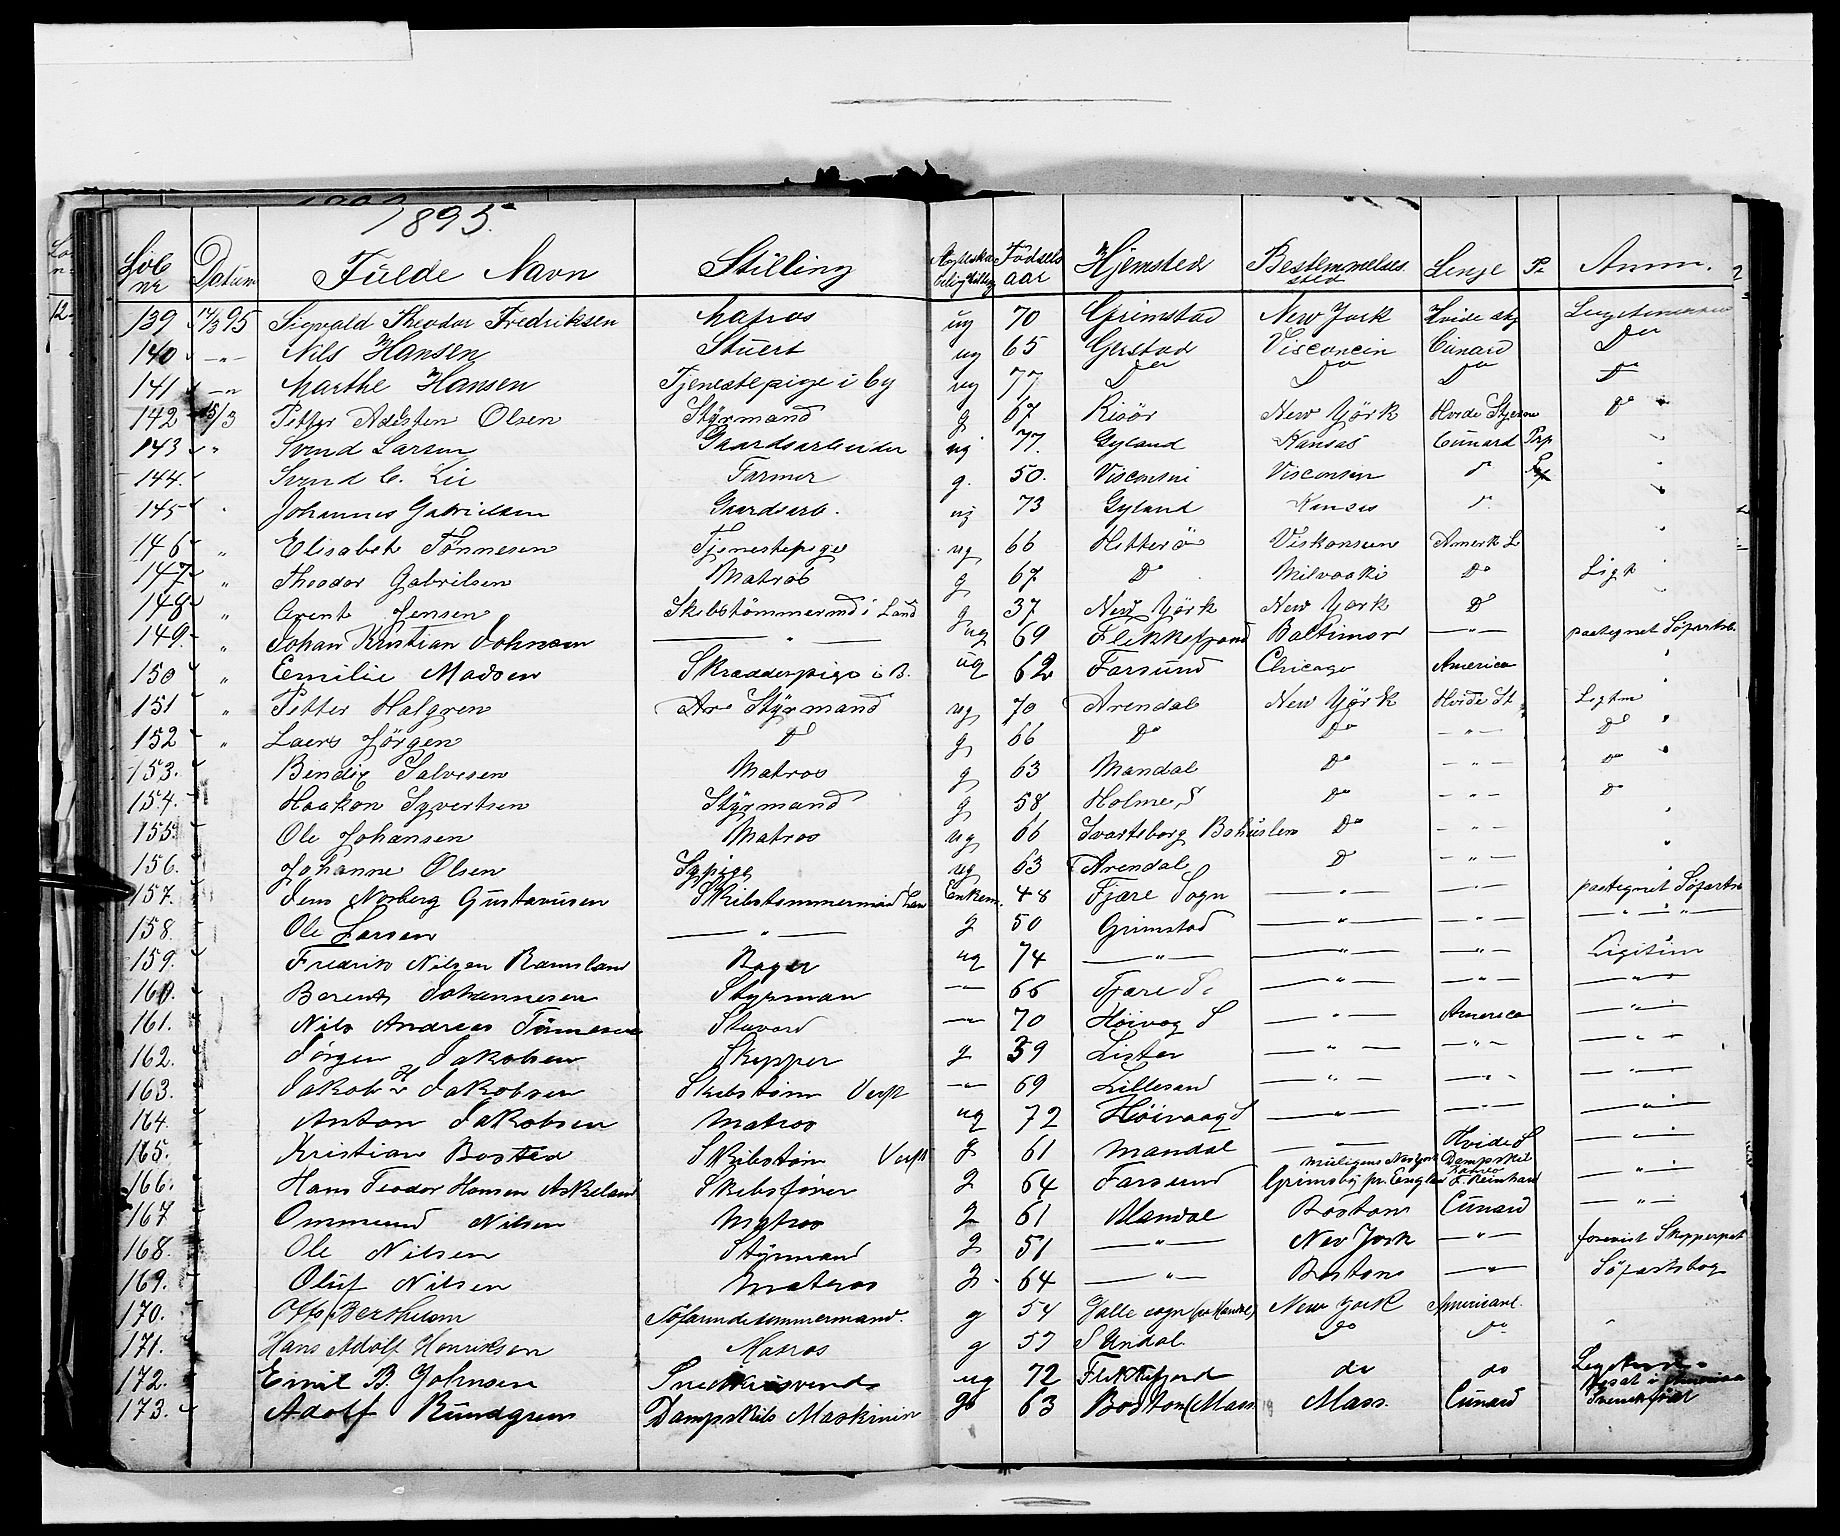 1895.
Löb nr Datum Fulde Navn Stilling Födsels aar Hjemsted Bestemmelses sted Linje Pr Anm.
139 12/3 95 Sigvald Theodor Fredriksen Matros ug 70 Grimstad New York Hvide
140 " Nils Hansen Stuert ug 65 Gerstad Visconcin Cunard Do
141 " Marthe Hansen Tjenestepige i by ug 77 Do Do Do Do
142 15/3 Petter Adesten Olsen Styrmand g 67 Risör New Yörk Hvide Stjerne Do
143 " Svend Larsen Gaardsarbeider ug 77. Gyland Kansas Cunard Prp
144 Svend C. Lie Farmer g. 50. Visconsin Visconsin Do
145 " Johannes Gabrielsen Gaardsarb. ug 73 Gyland Kansas Do
146 " Elisabet Tönnesen Tjenestepige ug 66 Hitterö Viskonsin Amerk L
147 " Theodor Gabrilsen Matros g 67 Do Milvaaki Do Ligt
148 " Arent Jensen Skibstömmermd i Land g 37 New Yörk New York Do
149. " Johan Kristian Johnsen — " — ug 69 Flekkefjord Baltimor — " — paategnet Söfartsb.
150 " Emilie Madsen Skrædderpige i B. ug 62 Farsund Chicago America
151 " Petter Halgren Styrmand ug 70 Arendal New Yörk Hvide St Ligtm
152 " Laers Jörgen Do g 66 Do Do — " — Do
153. Bendix Salvesen Matros g 63 Mandal Do — " — Do
154. Haakon Syvertsen Styrmand g 58 Holme S Do — " — Do
155. Ole Johansen Matros ug 66 Svartsborg Bohuslen Do — " —
156. Johanne Olsen Sypige ug 63 Arendal Do — " —
157. Jens Norberg Gustavusen Skibstömmermand Enkem. 48 Fjære Sogn — " — — " — paategnet Söfartsb
158. Ole Larsen — " — g 50 Grimstad — " — — " — — " — " —
159. Fredrik Nilsen Ramsland Bager ug 74 — " — — " — — " — Ligitim
160. Berent Johannesen Styrman — " — 66 Fjære S. — " — — " — — " —
161. Nils Andreas Tönnesen Stuvard — " — 70 Höivog S — " — America — " —
162. Jörgen Jakobsen Skipper g 39 Lister — " — — " — — " —
163. Jakob Jakobsen Skibstöm Verft — " — 69 Lillesand — " — — " — — " —
164. Anton Jakobsen Matros ug 72 Höivaag S — " — — " — — " —
165. Kristian Bosted Skibstöm Verft g 61 Mandal — " — Hvide S — " —
166. Hans Teodor Hansen Askeland Skibsförer g 64 Farsund Grimsby pr. England Dampskib — " —
167 Ommund Nilsen Matros g 61 Mandal Boston Cunard — " —
168. Ole Nilsen Styrmand g 51 — " — New York — " — forevist Skipperpat
169. Oluf Nilsen Matros g. 64 — " — Boston — " — Söfartsbog
170. Otto Berthelsen Söfarendetömmermand. g 54 Halle sogn (pr Mandal) New York Americanl.
171. Hans Adolf Henriksen Matros g 57 S Undal. Do Do
172. Emil B. Johnsen Snedkersvend ug 72 Flekkefjord do do
173. Adolf Rundgren Dampskibs Maskinin g 63 Boston (Mass. Mass. Cunard